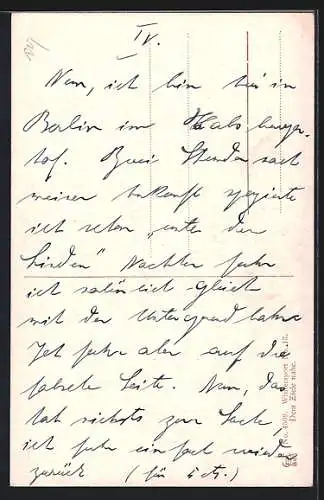 IV.
Nun, ich bin bei in
Berlin im Habsburger-
hof. Zwei Stunden nach
meiner Ankunft spazierte
ich schon „unter den
Linden“ Nachher fuhr
ich natürlich gleich
mit der Untergrundbahn
Ich fuhr aber auf die
falsche Seite. Nun, das
tat nichts zur Sache
ich fuhr einfach wieder
zurück (für 5 cts.)
No. 4009. Wintersport
Dem Ziele nahe.